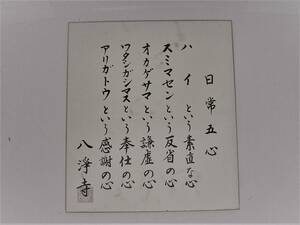 日常五心
ハイという素直な心
スミマセンという反省の心
オカゲサマという謙虚の心
ワタシガシマスという奉仕の心
アリガトウという感謝の心
八浄寺